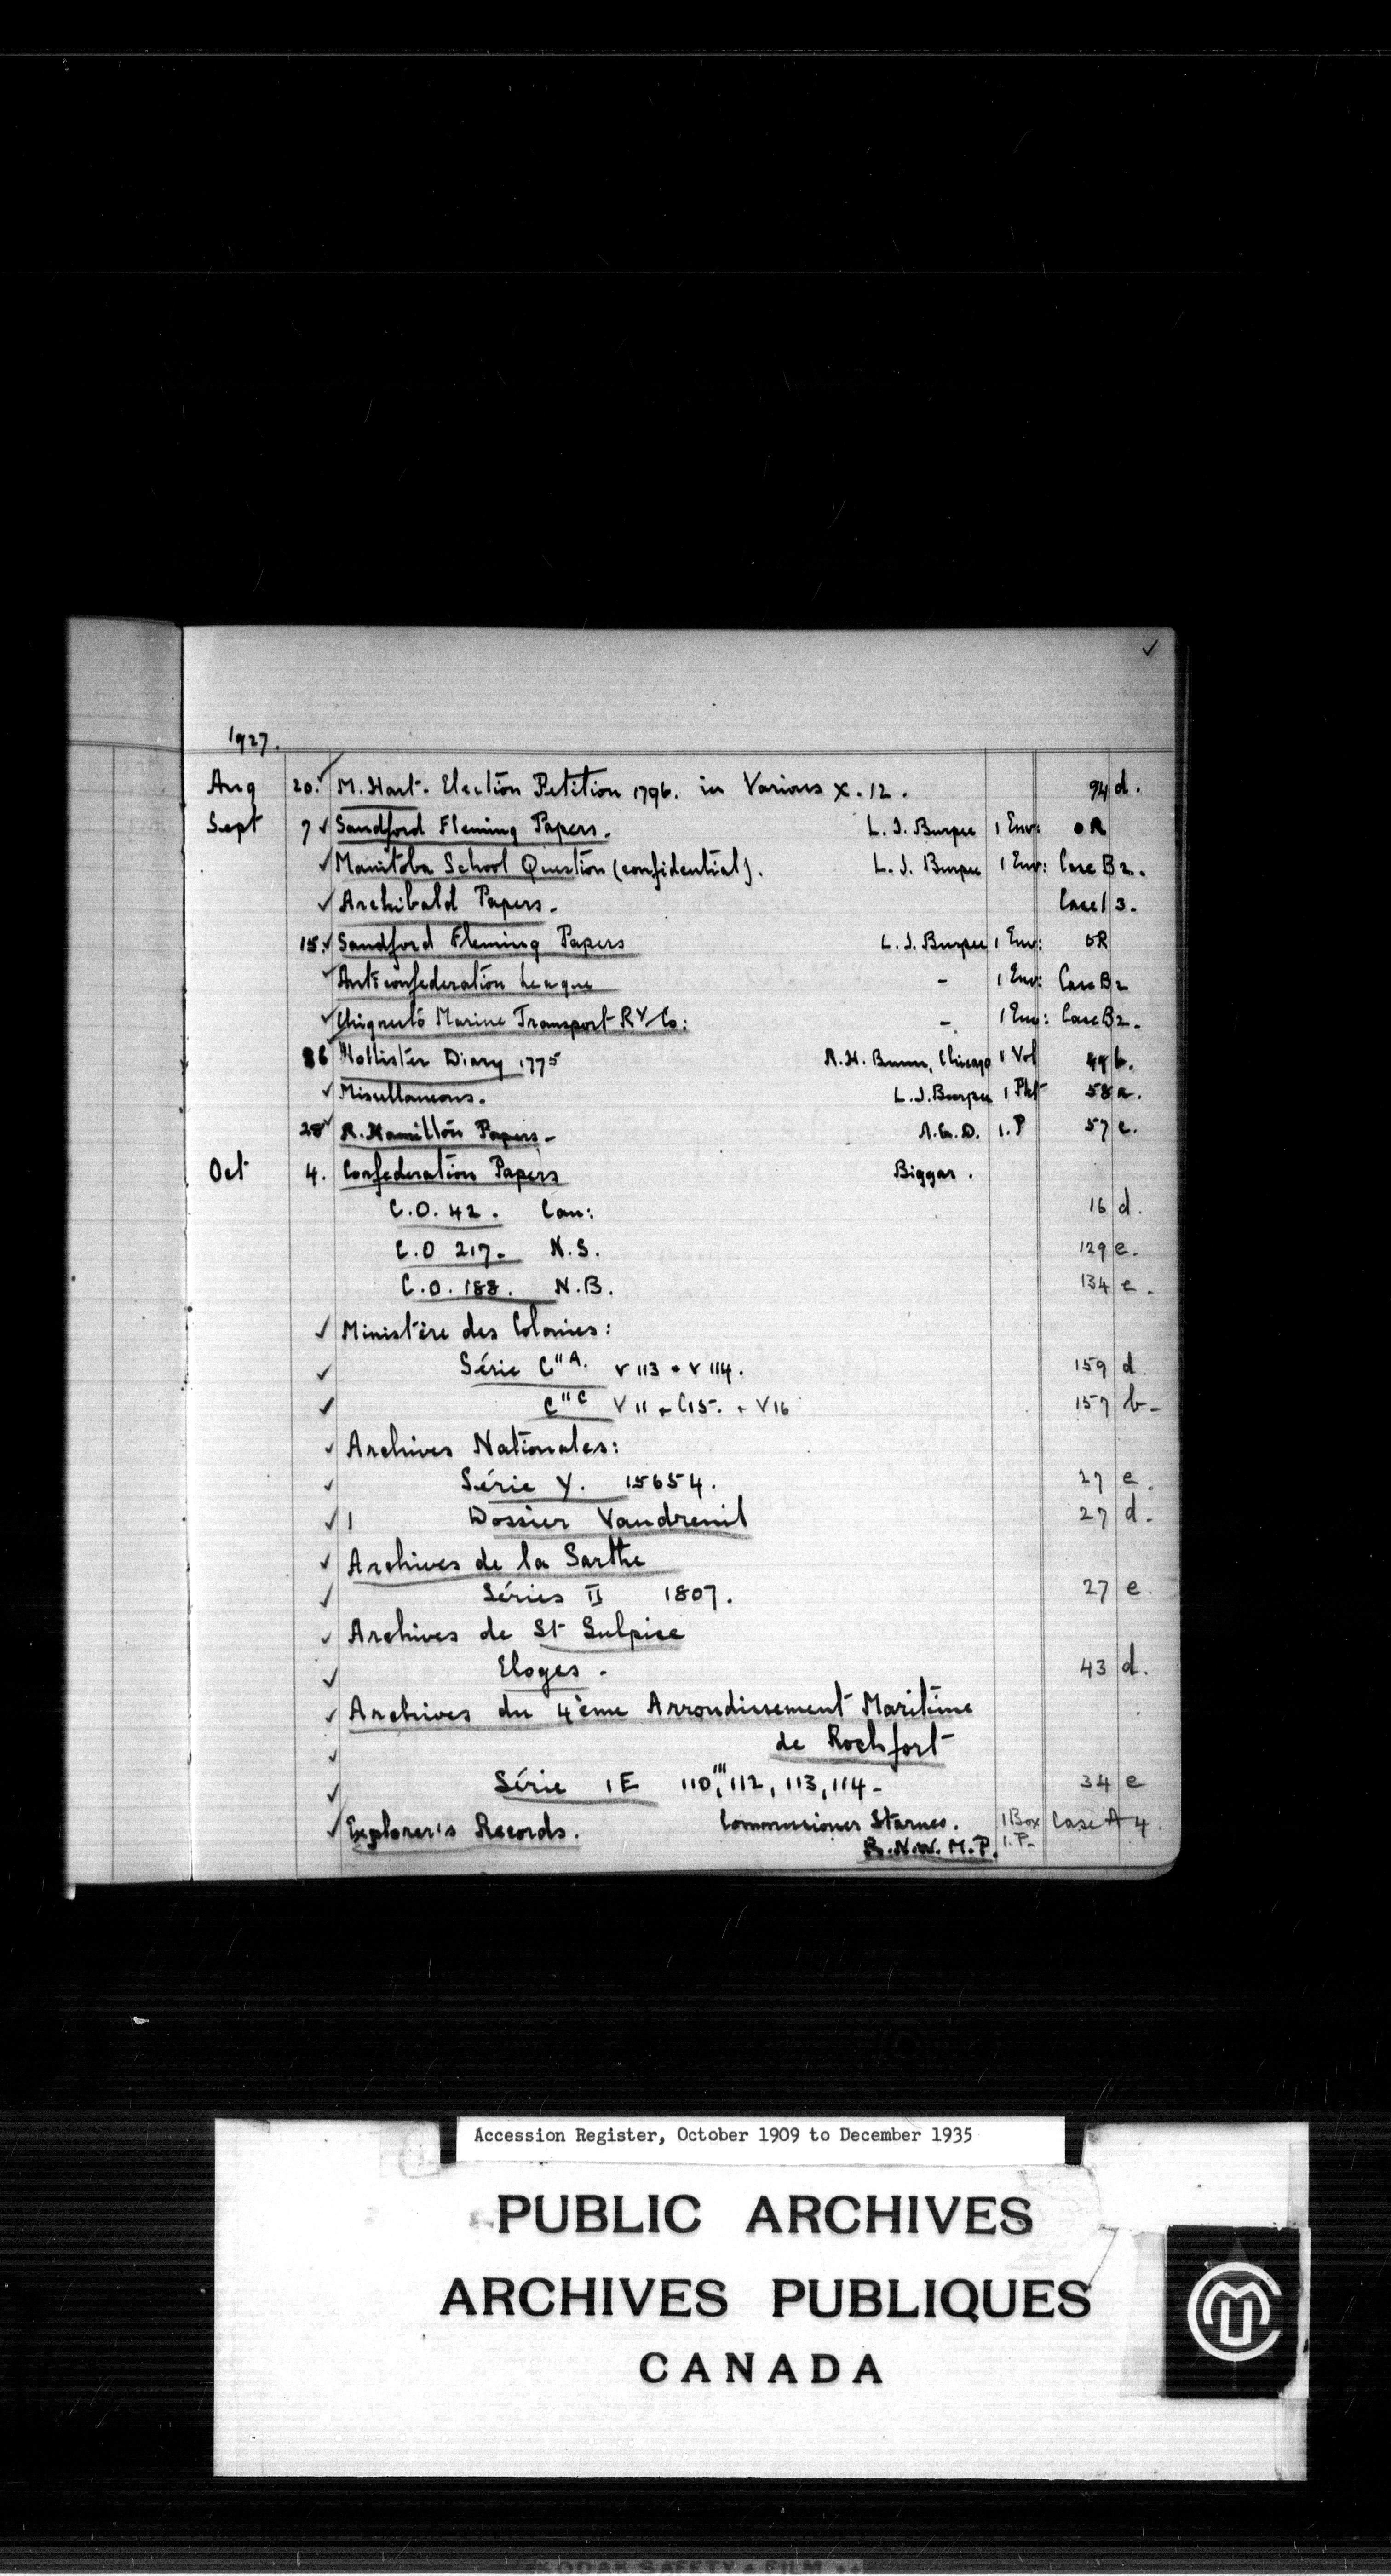 ✓
1927.
Aug 20. ✓ M. Hart. Election Petition 1796. in Various X. 12. 94 d.
Sept 7 ✓ Sandford Fleming Papers. L. J. Burpee 1 Env: R
✓ Manitoba School Question (confidential). L. J. Burpee 1 Env: Case B 2.
✓ Archibald Papers. Case 1 3.
15. ✓ Sandford Fleming Papers L. J. Burpee 1 Env: R
✓ Anti confederation League - 1 Env: Case B 2
✓ Chignecto Marine Transport Ry Co: - 1 Env: Case B 2.
Hollister Diary 1775 Chicago 1 Vol
✓ Miscellaneous. L. J. Burpee 1 Pkt 58 a.
28 ✓ R. Hamilton Papers - A.G.D. 1. P 57 e.
Oct 4. Confederation Papers Biggar.
C.O. 42. Can: 16 d.
C.O 217. N.S. 129 e.
C.O. 188. N.B. 134 e.
✓ Ministère des Colonies:
✓ Série C"A. V 113 V 114. 159 d
✓ C"C V 11 C15. V16 157 b-
✓ Archives Nationales:
✓ Série Y. 15654. 27 e.
✓ 1 Dossier Vaudreuil 27 d.
✓ Archives de la Sarthe
✓ Séries II 1807. 27 e.
✓ Archives de St Sulpice
✓ Eloges. 43 d.
✓ Archives du 4ème Arrondissement Maritime
✓ de Rochfort
✓ Série 1E 110, 111, 112, 113, 114- 34 e
✓ Explorer's Records. Commissioner Starnes. 1 Box Case A 4.
R.N.W.M.P. 1. P.
Accession Register, October 1909 to December 1935
PUBLIC ARCHIVES
ARCHIVES PUBLIQUES
CANADA
KODAK SAFETY FILM